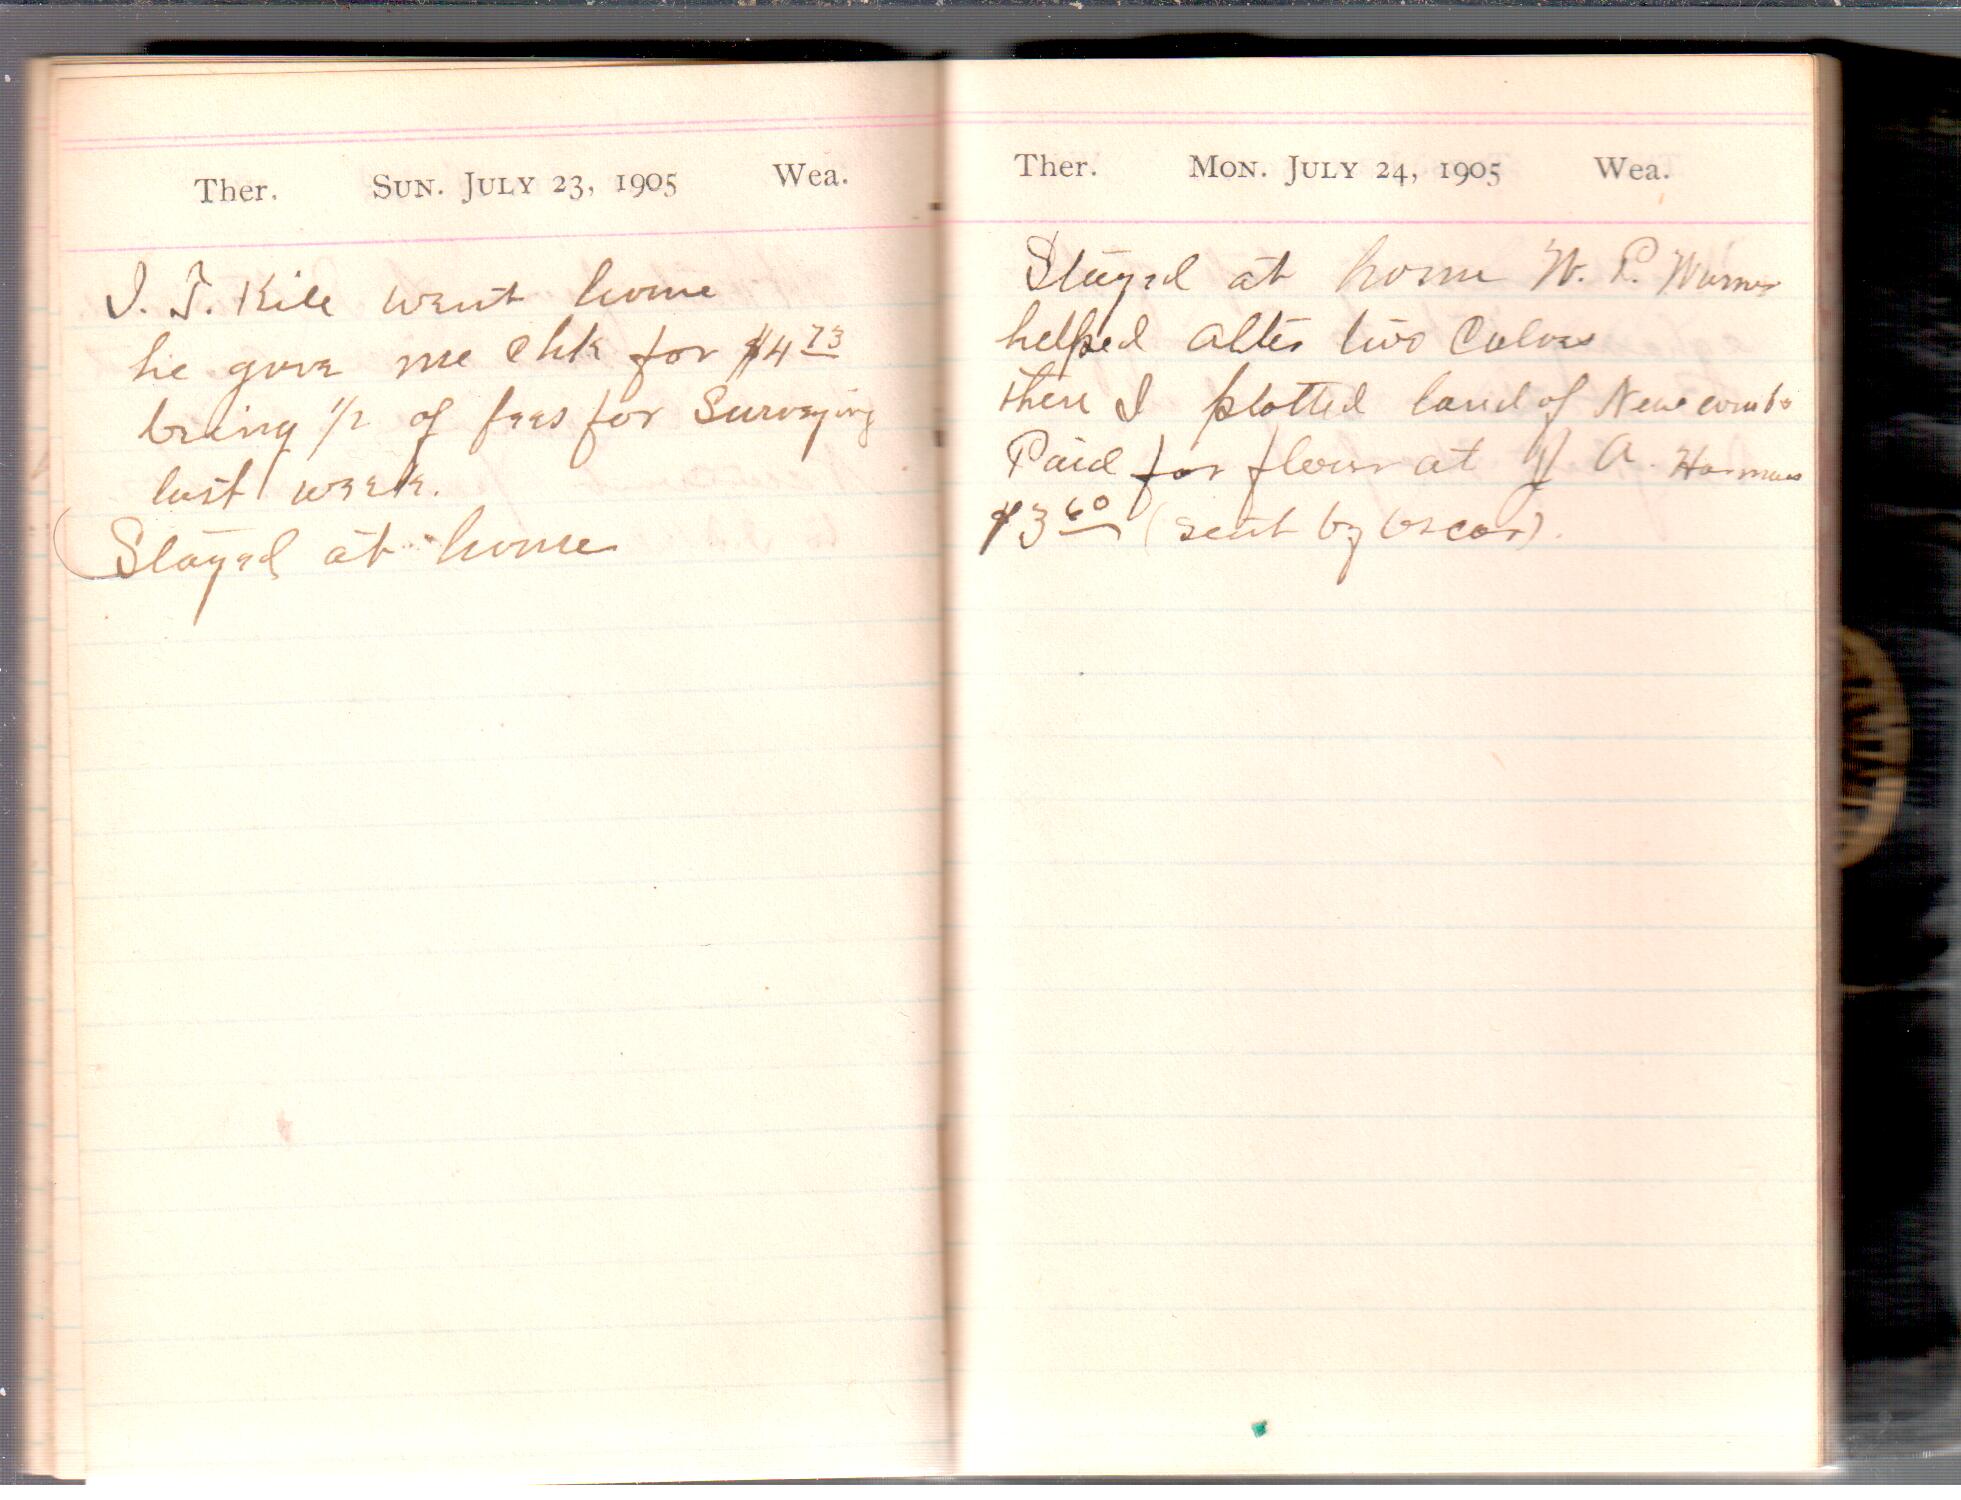 Ther. Sun. July 23, 1905 Wea.
I. T. Kile went home
he gave me chk for $4 73
being 1/2 of fees for Surveying
last week.
Stayed at home
Ther. Mon. July 24, 1905 Wea.
Stayed at home W. P. Warner
helped alter two Calves
then I plotted land of Newcombs
Paid for flour at A. Harmans
$3 60 (sent by Oscar).